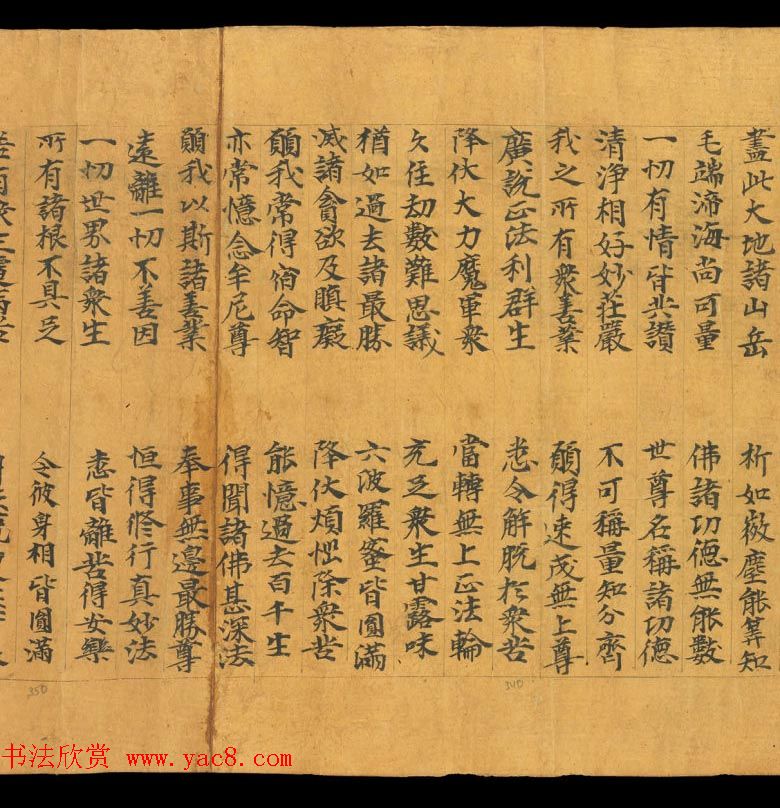 盡此大地諸山岳 析如微塵能筭知
毛端渧海尚可量 佛諸功德無能數
一切有情皆共讚 世尊名稱諸功德
清淨相好妙莊嚴 不可稱量知分齊
我之所有衆善業 願得速成無上尊
廣說正法利群生 悉令解脫於衆苦
降伏大力魔軍衆 當轉無上正法輪
久住劫數難思議 充足衆生甘露味
猶如過去諸最勝 六波羅蜜皆圓滿
滅諸貪欲及瞋癡 降伏煩惱除衆苦
願我常得宿命智 能憶過去百千生
亦常憶念牟尼尊 得聞諸佛甚深法
願我以斯諸善業 奉事無邊最勝尊
遠離一切不善因 恒得修行真妙法
一切世界諸衆生 悉皆離苦得安樂
所有諸根不具足 令彼身相皆圓滿
340
350
书法欣赏 www.yac8.com